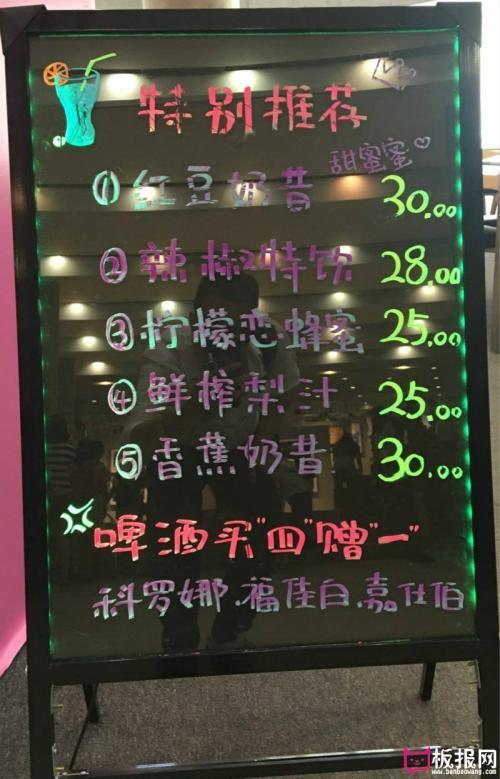 特别推荐
甜蜜蜜♡
①红豆奶昔 30.00
②辣椒特饮 28.00
③柠檬恋蜂蜜 25.00
④鲜榨梨汁 25.00
⑤香蕉奶昔 30.00
啤酒买"四"赠"一"
科罗娜.福佳白.嘉仕伯
板报网
www.banbaowang.com